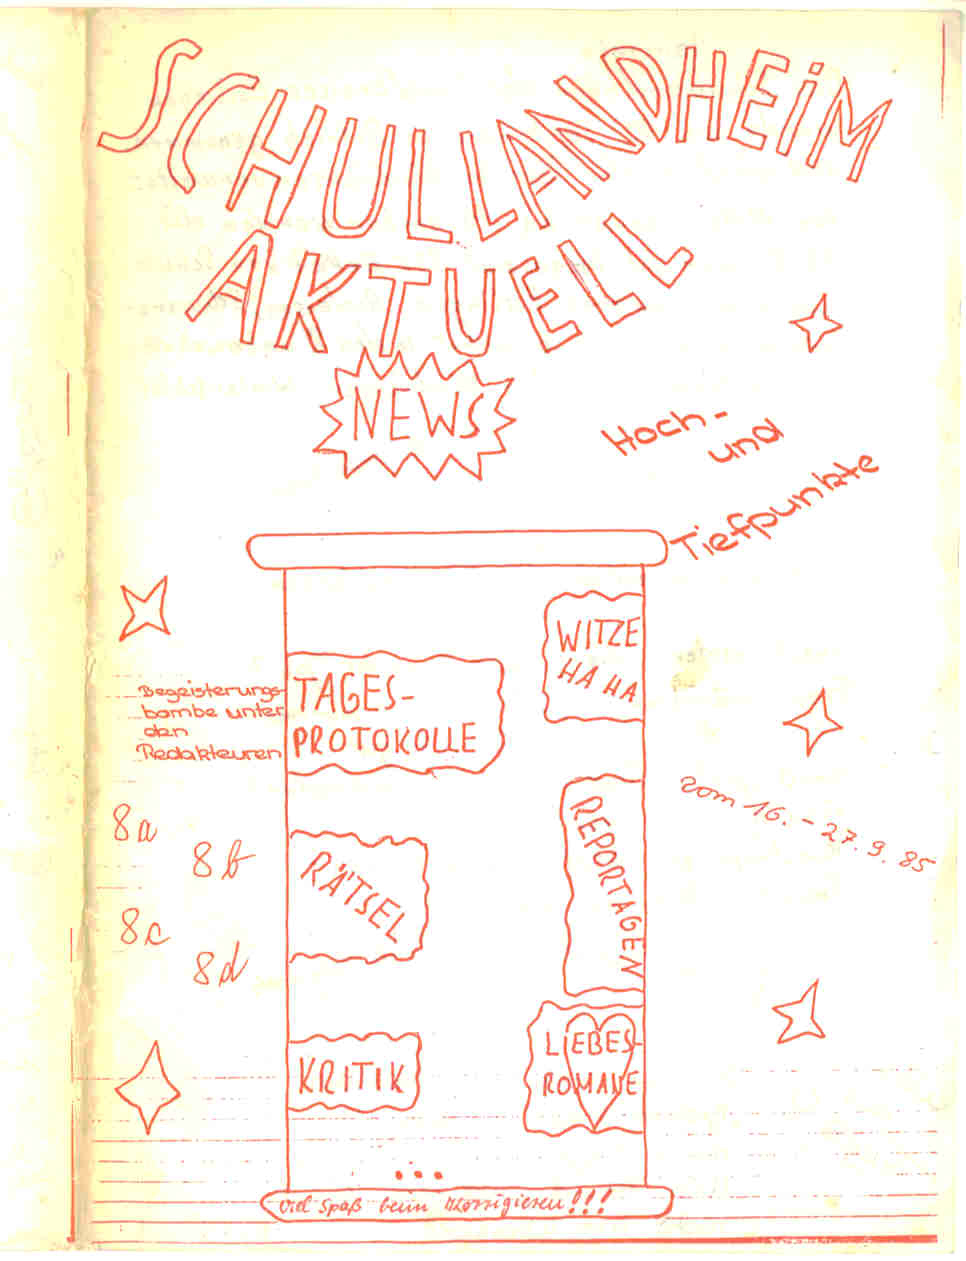 SCHULLANDHEIM
AKTUELL
NEWS
Hoch-
und
Tiefpunkte
WITZE
HA HA
TAGES-
PROTOKOLLE
Begeisterungs-
bombe unter
den
Redakteuren
REPORTAGEN
vom 16. - 27. 9. 85
8a
8b
8c
8d
RÄTSEL
KRITIK
LiEBES-
ROMANE
...
Viel Spaß beim Korrigieren!!!